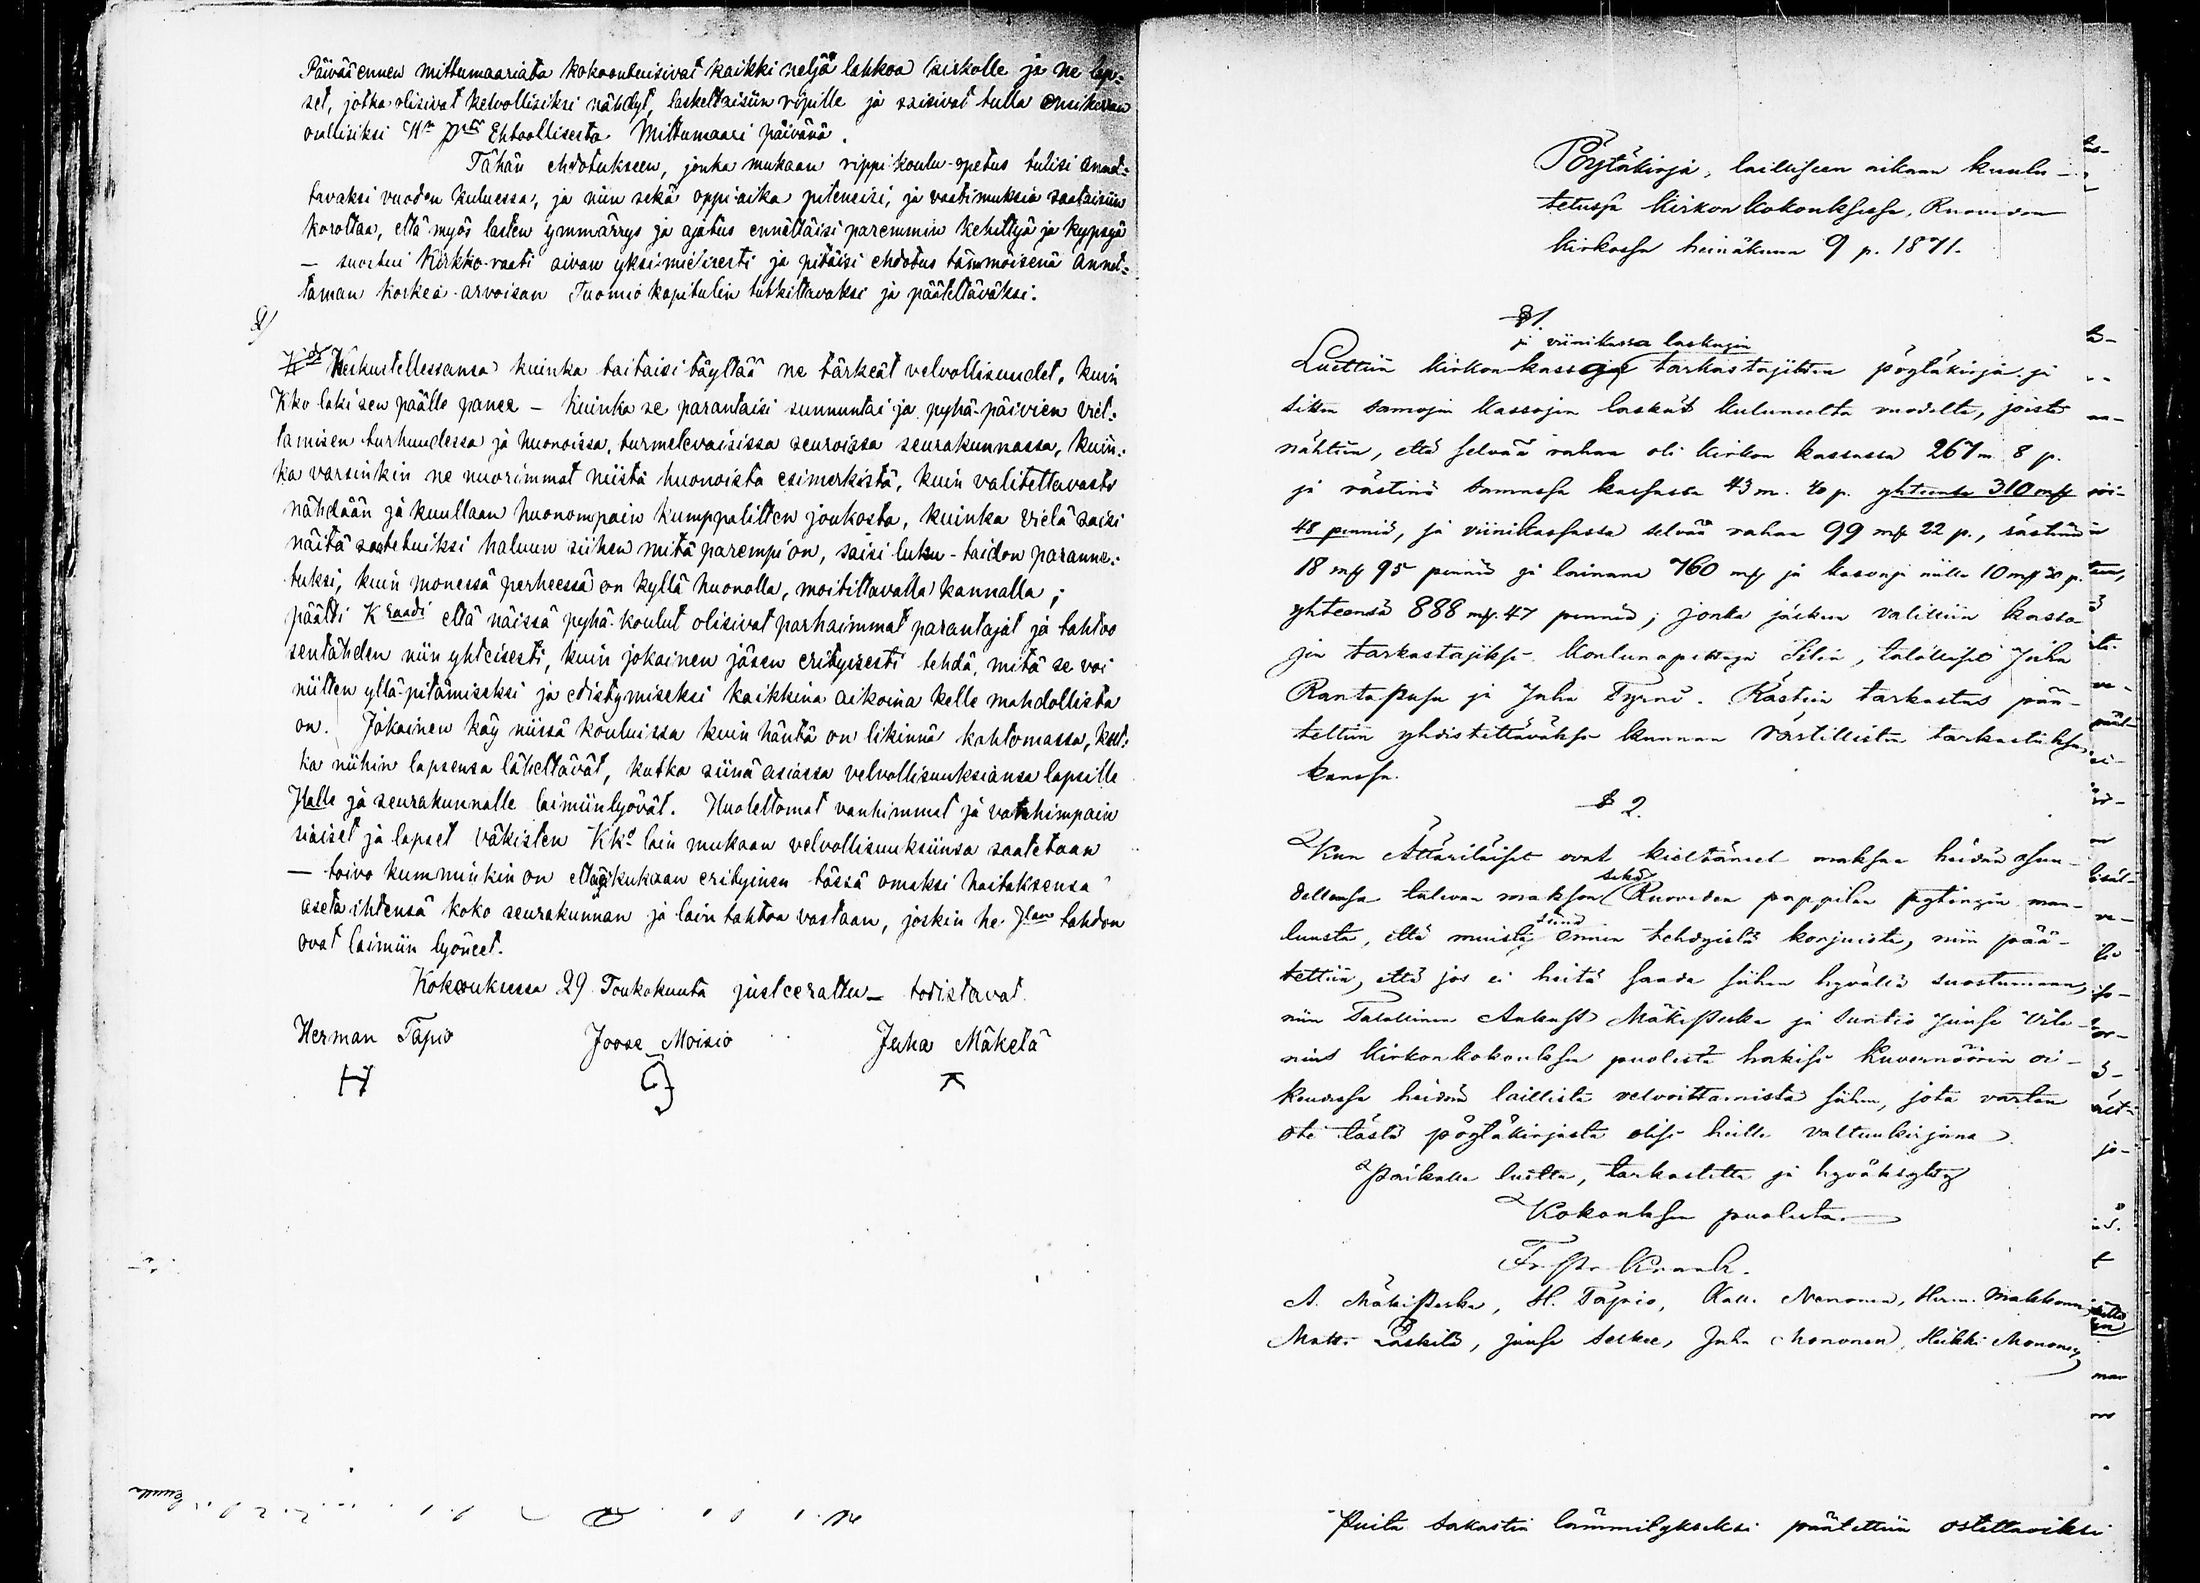 Päivää ennen mittumaariata kokoontuisivat kaikki neljä lahkoa kirkolle ja ne lap-
set, jotka olisivat kelvollisiksi nähdyt, laskettaisiin ripille ja saisivat tulla ensikerran
osallisiksi Hn Ptä Ehtoollisesta Mittumaari päivänä.
Tähän ehdotukseen, jonka mukaan rippi koulu-opetus tulisi annet-
tavaksi vuoden kuluessa, ja niin sekä oppi-aika pitenisi, ja vaatimuksia saataisiin
korottaa, että myös lasten ymmärrys ja ajatus ennättäisi paremmin kehittyä ja kypsyä
— suostui Kirkko-raati aivan yksimielisesti ja pitäisi ehdotus tämmöisenä annet-
taman korkea-arvoisan Tuomio kapitulin tutkittavaksi ja päätettäväksi.
Keskustellessansa kuinka taitaisi täyttää ne tärkeät velvollisuudet, kuin
Kko laki sen päälle panee — kuinka se parantaisi sunnuntai ja pyhä-päivien viet-
tamisen turhuudessa ja huonoissa, turmelevaisissa seuroissa seurakunnassa, kuin-
ka varsinkin ne nuorimmat niistä huonoista esimerkistä, kuin valitettavasti
nähdään ja kuullaan huonompain kumppalitten joukosta, kuinka vielä saisi
näitä saatetuiksi haluun siihen mitä parempi on, saisi luku-taidon paranne-
tuksi, kuin monessa perheessä on kyllä huonolla, moitittavalla kannalla;
päätti Kraadi että näissä pyhä-koulut olisivat parhaimmat parantajat ja tahtoo
sentähden niin yhteisesti, kuin jokainen jäsen erityisesti tehdä, mitä se voi
niitten yllä-pitämiseksi ja edistymiseksi kaikkina aikoina kelle mahdollista
on. Jokainen käy niissä kouluissa kuin häntä on likinnä kahtomassa, kut-
ka niihin lapsensa lähettävät, kutka siinä asiassa velvollisuuksiansa lapsille
Jlalle ja seurakunnalle laimiinlyövät. Huolettomat vanhimmat ja vanhimpain
siaiset ja lapset väkisten Kko lain mukaan velvollisuuksiinsa saatetaan
— toivo kumminkin on ettäi kukaan erityinen tässä omaksi haitaksensa
aseta ihtensä koko seurakunnan ja lain tahtoa vastaan, joskin he Jlan tahdon
ovat laimiin lyöneet.
Kokouksessa 29 Toukokuuta justeerattu — todistavat
Herman Tapio Joose Moisio Juha Mäkelä
Pöytäkirja, lailliseen aikaan kuulu-
tetussa kirkon kokouksessa, Ruoveden
kirkossa heinäkuun 9 p. 1871.
§ 1.
ja viinikassa laskujen
Luettiin kirkon-kassojen tarkastajitten pöytäkirja ja
sitten samojen kassojen laskut kuluneelta vuodelta, joista
nähtiin, että selvää rahaa oli kirkon kassassa 267 m 8 p.
ja rästinä samassa kassassa 43 m. 40 p. yhteensä 310 mk
48 penniä, ja viinikassassa selvää rahaa 99 mk 22 p., rästinä
18 mk 95 penniä ja lainana 760 mk ja kasvoja niille 10 mk 30 p.
yhteensä 888 mk. 47 penniä; jonka jäskeen valittiin kassa
jen tarkastajiksi koulunopettaja Silin, talolliset Juha
Rantapusa ja Juha Tyrni. Rästien tarkastus pää-
tettiin yhdistettäväksi kunnan rästillisten tarkastuksen
kanssa.
§ 2.
Kun Ättäriläiset ovat kieltäneet maksaa heidän osuu-
dellensa tulevan makson sekä Ruoveden pappilan pytingin man-
luusta, että muista siinä ennen tehdyistä korjuista, niin pää-
tettiin, että jos ei heitä saada siihen hyvällä suostumaan,
niin Talollinen Aukusti Mäkipeska ja suntio Juuse Vile-
nius kirkonkokouksen puolesta hakisi Kuvernöörin oi-
keudessa heidän laillista velvoittamista siihen, jota varten
ote tästä pöytäkirjasta olisi heille valtuukirjana.
Paikalla luettu, tarkastettu ja hyväksytty
Kokouksen puolesta
A. Mäkipeska, H. Tapio, Kalle Nenonen, Herm. Makkonen,
Matti Laskila, Juuse Seskee, Juha Mononen, Heikki Mononen
Puita sakastin lämmitykseksi päätettiin ostettaviksi